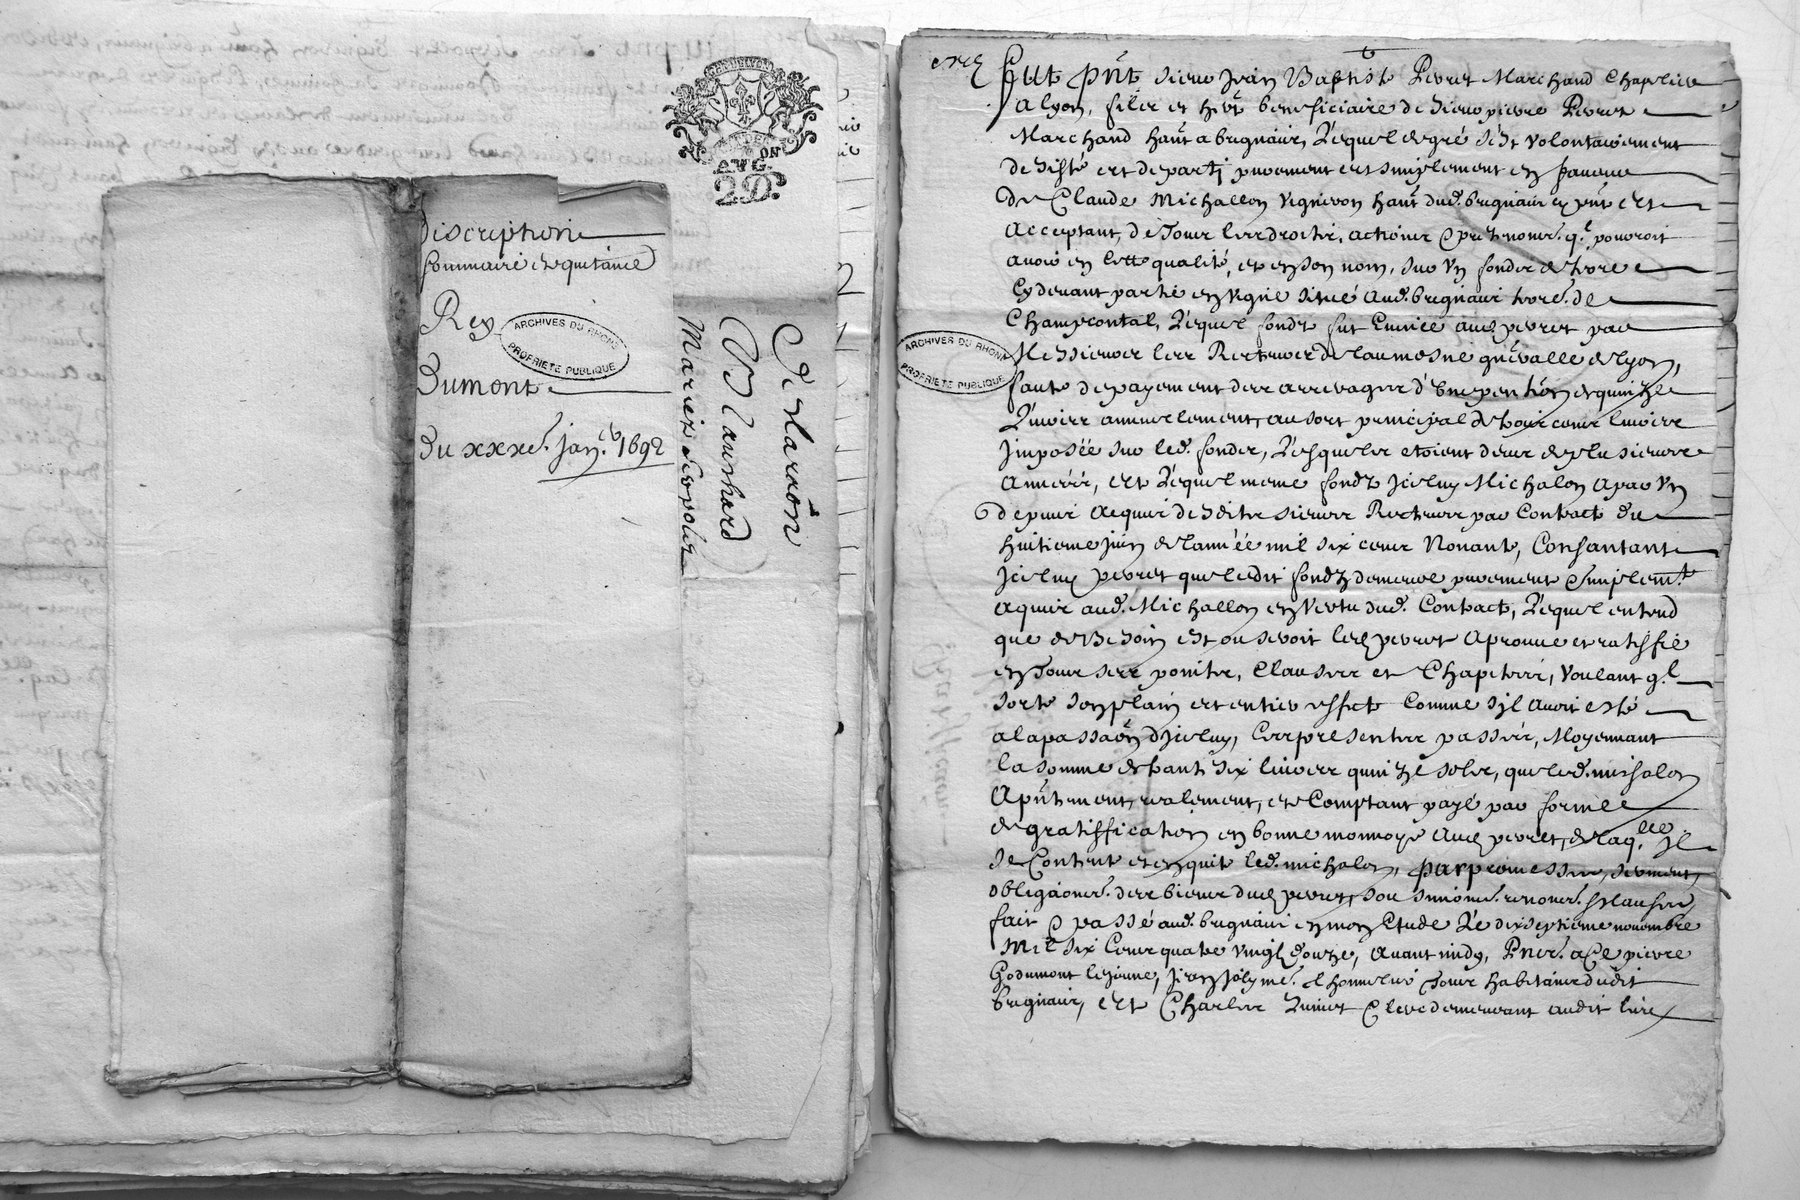 Discription
sommaire et quitance
Rey
Dumont
Du xxxe. janr. 1692
ARCHIVES DU RHONE
PROPRIETE PUBLIQUE
GEN DE LYON
AVG.
2D.
Declaraôn
Blanchard
Mariez
ARCHIVES DU RHONE
PROPRIETE PUBLIQUE
Fut pnt sieur Jean Baptiste Peyret Marchand Chapelier
a lyon, filz et herr beneficiaire de sieur pierre Peyret
Marchand hant a brignais, Lequel de gré s'est volontairement
desisté et departj purement et simplement en faueur
De Claude Michallon vigneron hant dud. brignais cy pnt et
acceptant, de Tous les droitz, actions & pretnons. q'l pouroit
auoir en cette qualité, et en son nom, sur vn fondz de terre
cy deuant partie en vigne situé aud. brignais terre. de
Champcontal, Lequel fondz fut euincé aud peyret par
Messieurs les Recteurs de laumosne gnealle de lyon,
faute de payement des arrerages d'vne pention de quinze
Liures annuelement, au sort principal de trois cens liures
Jmposée sur led. fondz, Lesquelz etoient deus de plusieurs
années, et Lequel meme fondz Jceluy Michalon apar vn
depuis acquis desditz sieurs Recteurs par Contract du
huitieme juin de l'année mil six cens Nonante, Consantant
Jceluy peyret que ledit fondz demeure purement & simplemt.
aquis aud. Michallon en vertu dud. Contract, Lequel entend
que de Besoin est ou seroit led peyret aprouue et ratiffié
en Tous ses pointz, Clauses et Chapitres, voulant q'l
sorte son plain et entier effect Comme s'jl auoit esté
a la passaôn d'jceluy, Ces presentes passées, Moyennant
la somme de trante six liures quinze solz, que led. michalon
a pntement, realement, et Comptant payé par forme
de gratiffication en bonne monnoye aud peyret, de laqlle. jl
se Contente et en quite led. michalon, par promesses, serment,
obligaons. des biens dud peyret, soumions. renons. & clauses
fait & passé aud. brignais en mon Etude Le dixseptieme nouembre
Mil six Cens quatre vingtz douze, auant midy, Pnes. a Ce pierre
Godumont le jeune, Jean Joly me. chonnelié Tous habitans dudit
brignais, et Charles Clerc demeurant audit lieu